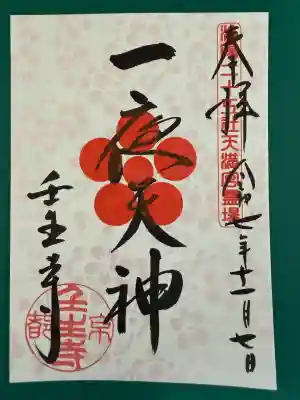 奉拝
令和七年十一月七日
洛陽二十五社天満宮霊場
一夜天神
壬生寺
京都
壬生寺